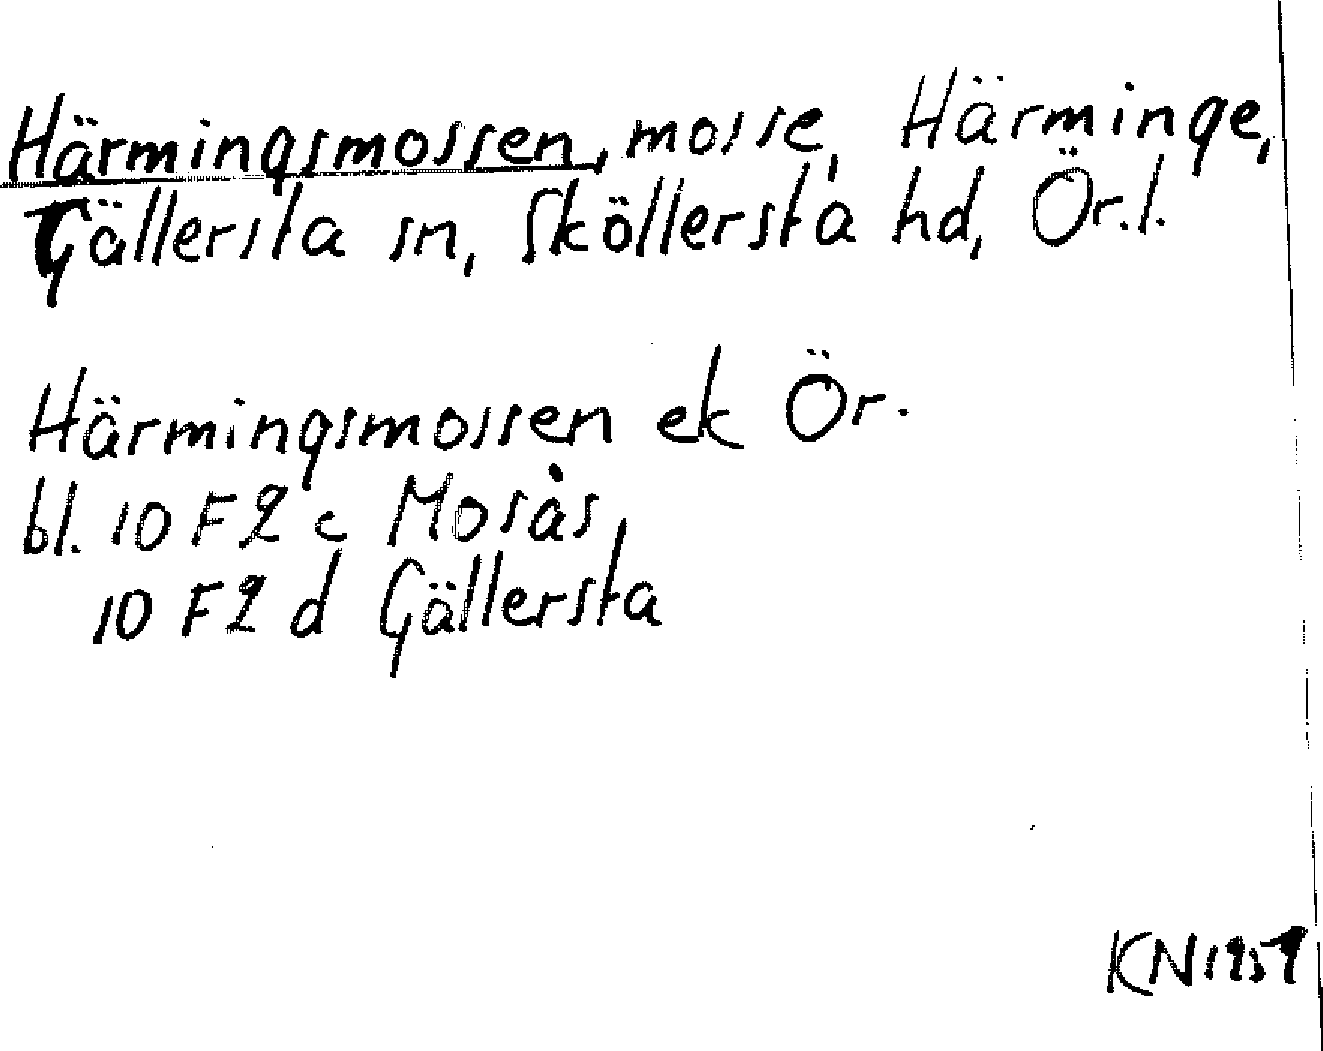 Härmingsmossen, mosse, Härminge,
Gällersta sn, Sköllersta hd, Ör.l.
Härmingsmossen ek Ör.
bl. 10 F 2 c Mosås,
10 F 2 d Gällersta
KN 1959